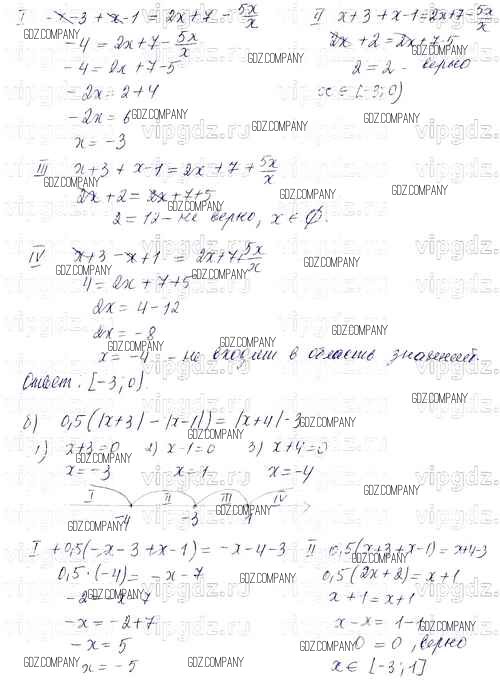 I -x-3+x-1 = 2x+7-5x/x
-4 = 2x+7-5x/x
-4 = 2x+7-5
-2x = 2+4
-2x = 6
x = -3
II x+3+x-1=2x+7-5x/x
2x+2=2x+7-5
2=2 - верно
x ∈ [-3;0)
III x+3+x-1=2x+7+5x/x
2x+2=2x+7+5
2=12 - не верно, x ∈ ∅.
IV x+3-x+1 = 2x+7+5x/x
4 = 2x+7+5
2x = 4-12
2x = -8
x = -4 - не входит в область значений.
Ответ: [-3;0)
б) 0,5(|x+3|-|x-1|)=|x+4|-3
1) x+3=0 2) x-1=0 3) x+4=0
x=-3 x=1 x=-4
I II III IV
-4 -3 1
I +0,5(-x-3+x-1)=-x-4-3
0,5·(-4)=-x-7
-2=-x-7
-x=-2+7
-x=5
x=-5
II 0,5(x+3+x-1)=x+4-3
0,5(2x+2)=x+1
x+1=x+1
x-x=1-1
0=0, верно
x ∈ [-3;1]
GDZ.COMPANY
vipgdz.ru